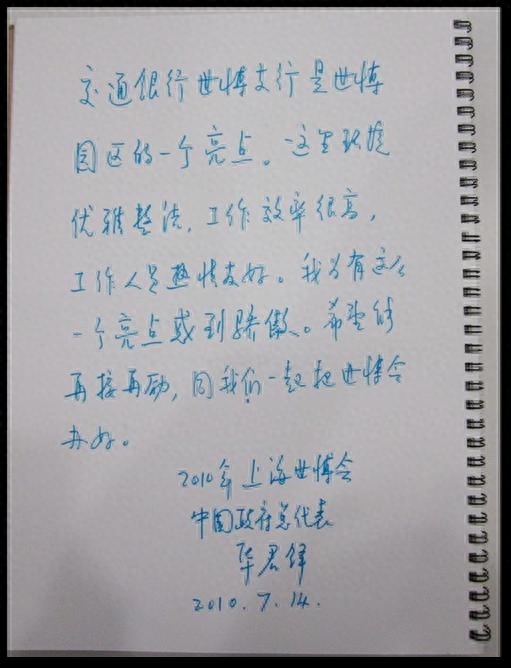 交通银行世博支行是世博
园区的一个亮点。这里环境
优雅整洁,工作效率很高,
工作人员热情友好。我为有这么
一个亮点感到骄傲。希望你
再接再励,同我们一起把世博会
办好。
2010年上海世博会
中国政府总代表
华君铎
2010.7.14.